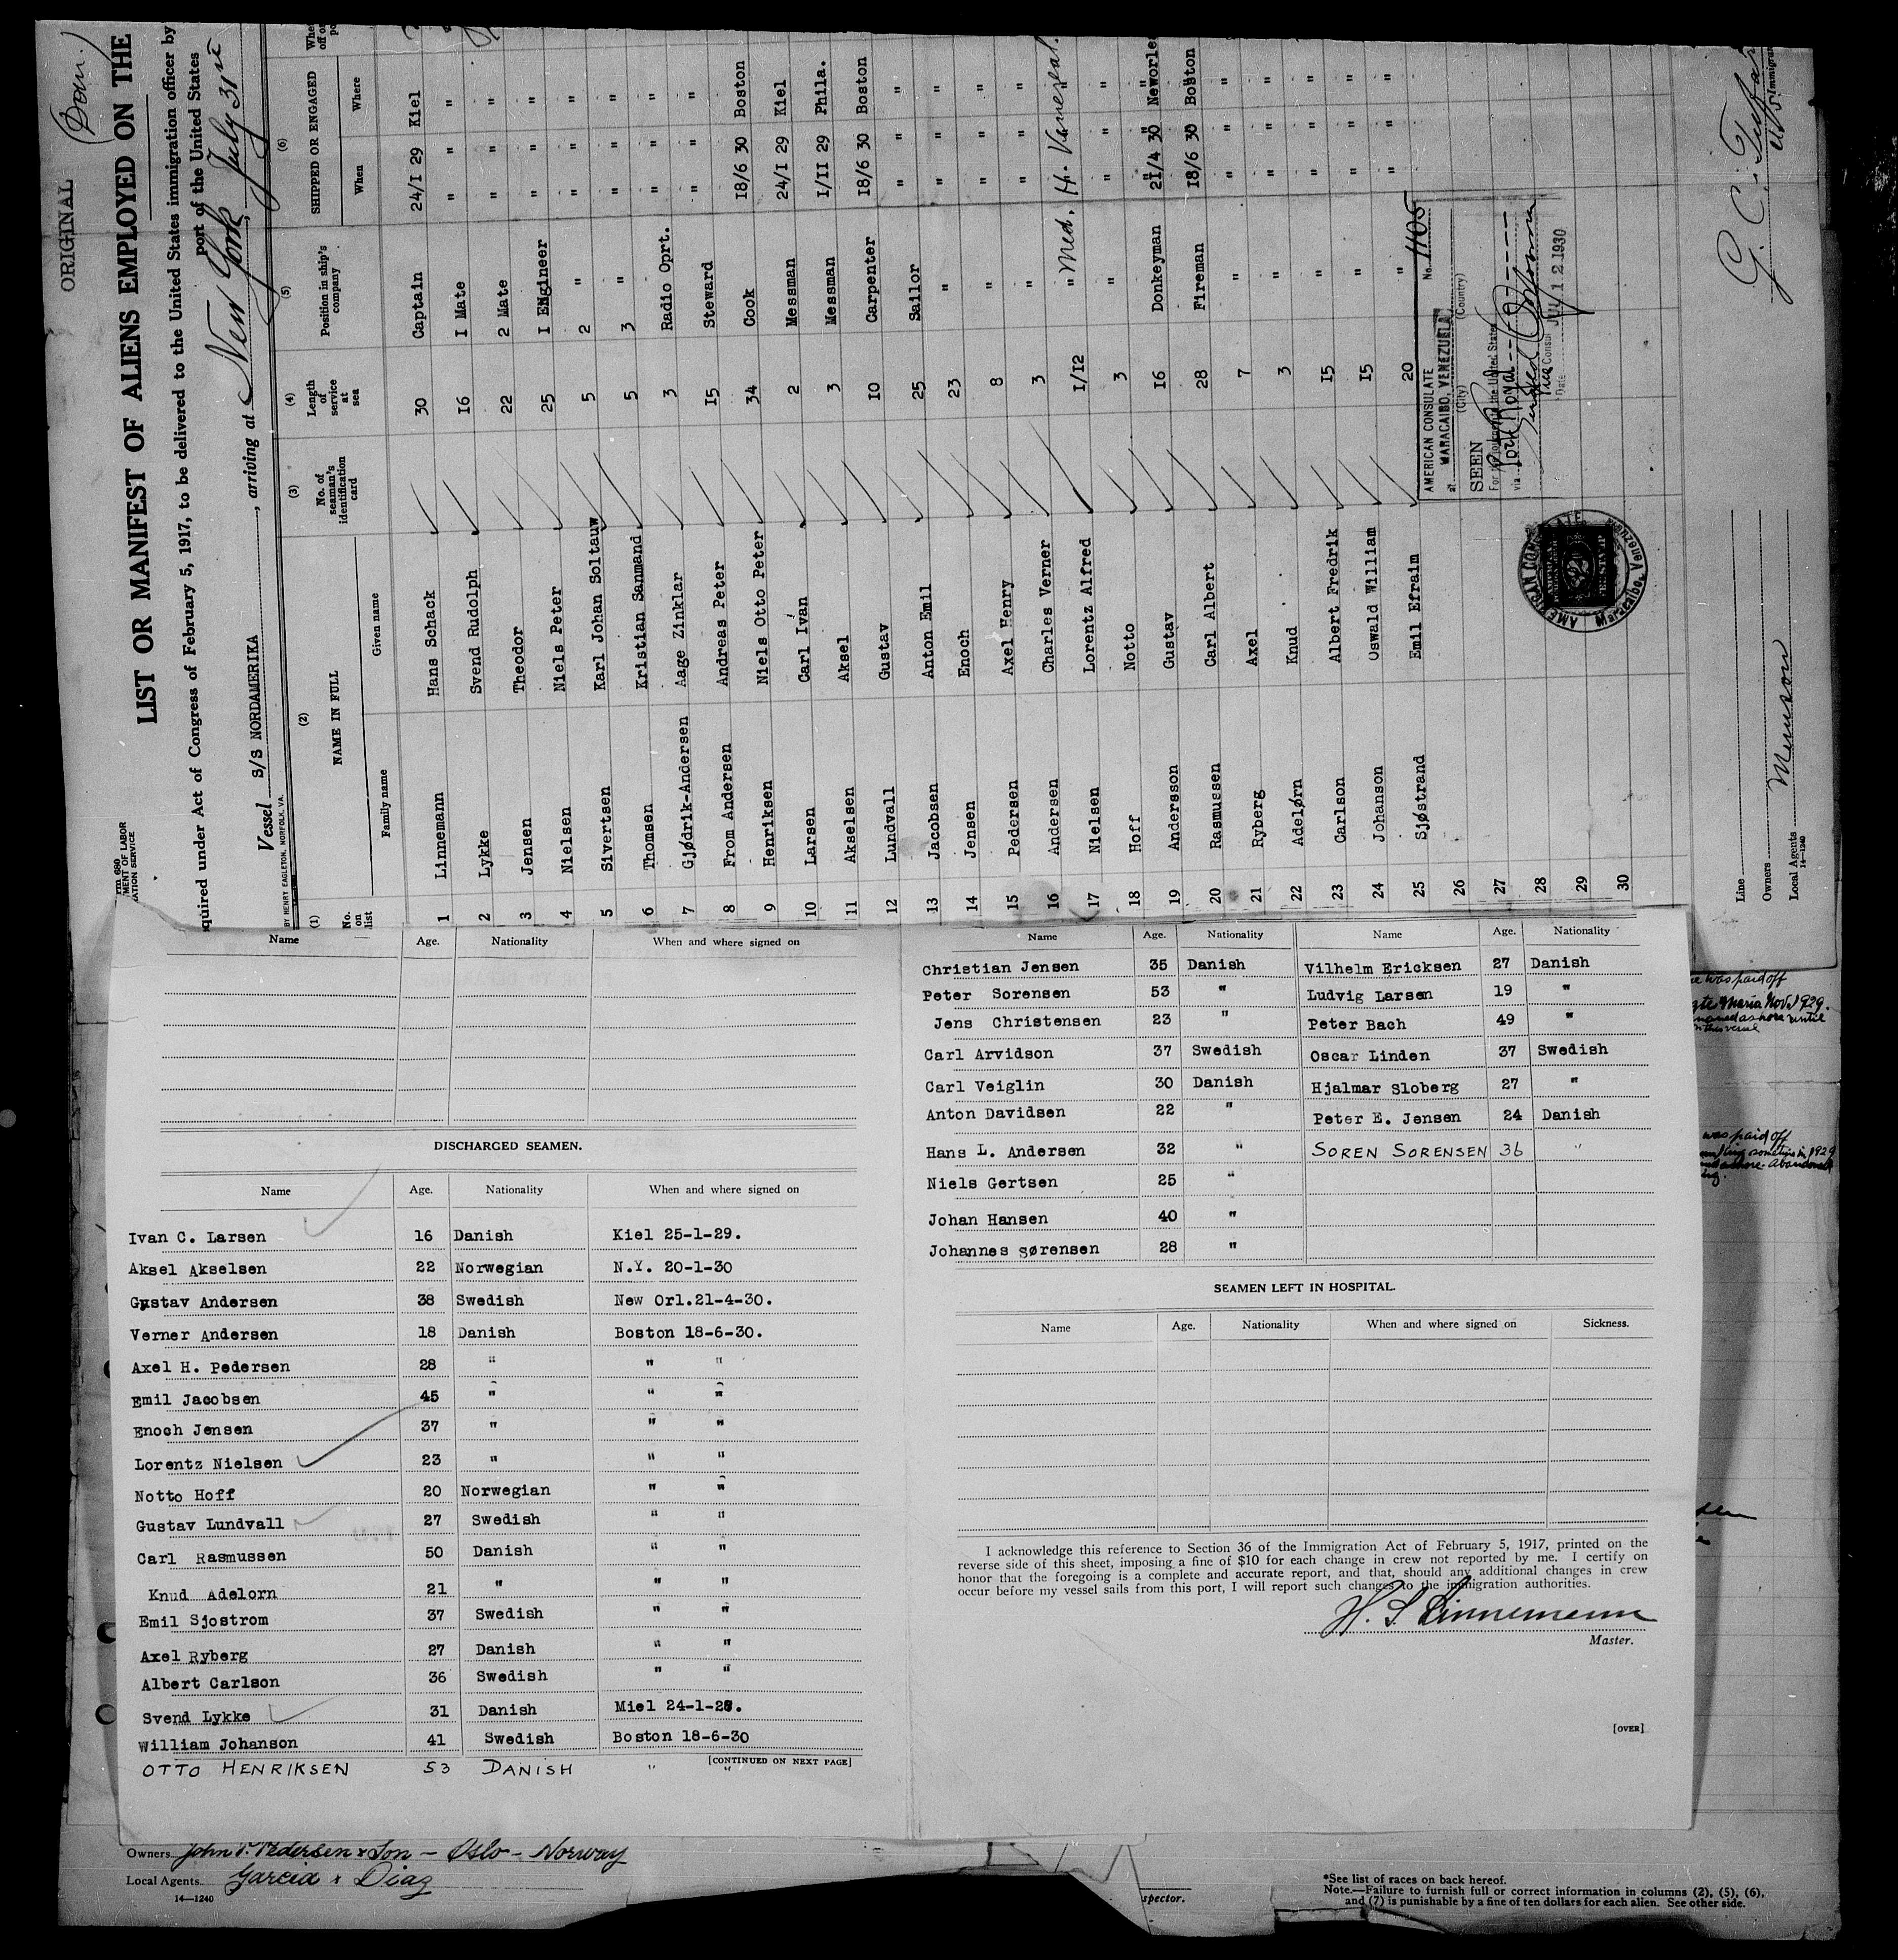 ORIGINAL (Dan.)
LIST OR MANIFEST OF ALIENS EMPLOYED ON THE
quired under Act of Congress of February 5, 1917, to be delivered to the United States immigration officer by
port of the United States
Vessel S/S NORDAMERIKA, arriving at New York July 31st
BY HENRY EAGLETON, NORFOLK, VA.
(1) (2) (3) (4) (5) (6)
No. on list NAME IN FULL No. of seaman's identification card Length of service at sea Position in ship's company SHIPPED OR ENGAGED
Family name Given name When Where
1 Linnemann Hans Schack 30 Captain 24/I 29 Kiel
2 Lykke Svend Rudolph 16 I Mate " " "
3 Jensen Theodor 22 2 Mate " " "
4 Nielsen Niels Peter 25 I ENgineer " " "
5 Sivertsen Karl Johan Soltauw 5 2 " " " "
6 Thomsen Kristian Sanmand 5 3 " " " "
7 Gjødrik-Andersen Aage Zinklar 3 Radio Oprt. " " "
8 From Andersen Andreas Peter 15 Steward " " "
9 Henriksen Niels Otto Peter 34 Cook 18/6 30 Boston
10 Larsen Carl Ivan 2 Messman 24/I 29 Kiel
11 Akselsen Aksel 3 Messman I/II 29 Phila.
12 Lundvall Gustav 10 Carpenter 18/6 30 Boston
13 Jacobsen Anton Emil 25 Sailor " " "
14 Jensen Enoch 23 " " " "
15 Pedersen Axel Henry 8 " " " "
16 Andersen Charles Verner 3 " " " "
17 Nielsen Lorentz Alfred 1/12 " Med. H. Venereal.
18 Hoff Notto 3 " " " "
19 Andersson Gustav 16 Donkeyman 21/4 30 Neworle
20 Rasmussen Carl Albert 28 Fireman 18/6 30 Boston
21 Ryberg Axel 7 " " " "
22 Adelørn Knud 3 " " " "
23 Carlson Albert Fredrik 15 " " " "
24 Johanson Oswald William 15 " " " "
25 Sjøstrand Emil Efraim 20 "
26
27
28
29
30
AMERICAN CONSULATE No. 1105
at MARACAIBO, VENEZUELA
(City) (Country)
SEEN
For the United States
via Port Royal
Vice Consul
Date JUL 12 1930
AMERICAN CONSULATE
Maracaibo, Venezuela
Line
Owners Munson
Local Agents
14—1240
Name Age. Nationality When and where signed on
DISCHARGED SEAMEN.
Name Age. Nationality When and where signed on
Ivan C. Larsen 16 Danish Kiel 25-1-29.
Aksel Akselsen 22 Norwegian N.Y. 20-1-30
Gustav Andersen 38 Swedish New Orl.21-4-30.
Verner Andersen 18 Danish Boston 18-6-30.
Axel H. Pedersen 28 " " "
Emil Jacobsen 45 " " "
Enoch Jensen 37 " " "
Lorentz Nielsen 23 " " "
Notto Hoff 20 Norwegian " "
Gustav Lundvall 27 Swedish " "
Carl Rasmussen 50 Danish " "
Knud Adelorn 21 " " "
Emil Sjostrom 37 Swedish " "
Axel Ryberg 27 Danish " "
Albert Carlson 36 Swedish " "
Svend Lykke 31 Danish Miel 24-1-28.
William Johanson 41 Swedish Boston 18-6-30
OTTO HENRIKSEN 53 DANISH " "
[CONTINUED ON NEXT PAGE]
Name Age. Nationality Name Age. Nationality
Christian Jensen 35 Danish Vilhelm Ericksen 27 Danish
Peter Sorensen 53 " Ludvig Larsen 19 "
Jens Christensen 23 " Peter Bach 49 "
Carl Arvidson 37 Swedish Oscar Linden 37 Swedish
Carl Veiglin 30 Danish Hjalmar Sloberg 27 "
Anton Davidsen 22 " Peter E. Jensen 24 Danish
Hans L. Andersen 32 " SOREN SORENSEN 36 "
Niels Gertsen 25 "
Johan Hansen 40 "
Johannes Sørensen 28 "
SEAMEN LEFT IN HOSPITAL.
Name Age. Nationality When and where signed on Sickness.
I acknowledge this reference to Section 36 of the Immigration Act of February 5, 1917, printed on the
reverse side of this sheet, imposing a fine of $10 for each change in crew not reported by me. I certify on
honor that the foregoing is a complete and accurate report, and that, should any additional changes in crew
occur before my vessel sails from this port, I will report such changes to the immigration authorities.
H. S. Linnemann
Master.
[OVER]
was paid off
Maria Nov. 1929.
was paid off
Owners John P. Pedersen & Son – Oslo – Norway
Local Agents Garcia & Diaz
14—1240
spector.
*See list of races on back hereof.
Note.—Failure to furnish full or correct information in columns (2), (5), (6),
and (7) is punishable by a fine of ten dollars for each alien. See other side.